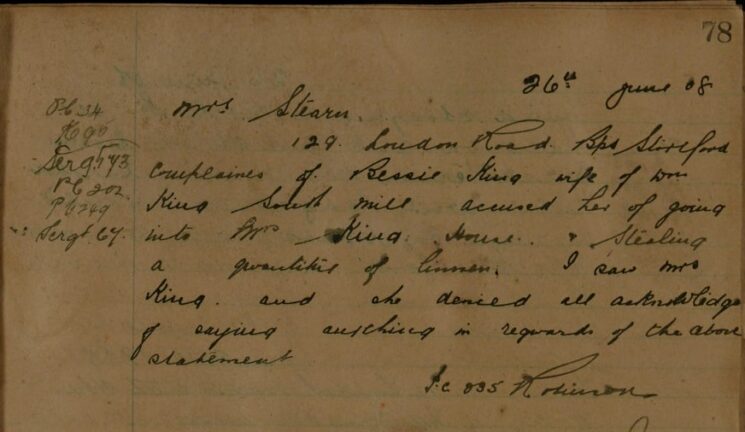 78
26th June 08
Mrs Stearn
129. London Road. Bps Stortford
complaines of Bessie King wife of Wm
King South Mill accused her of going
into Mrs King House. & Stealing
a quantitie of linnen. I saw Mrs
King. and she denied all acknowledge
of saying anything in regards of the above
statement
P.C. 335 Robinson
PC 34
Sergt 73
PC 202
PC 249
Sergt 67.